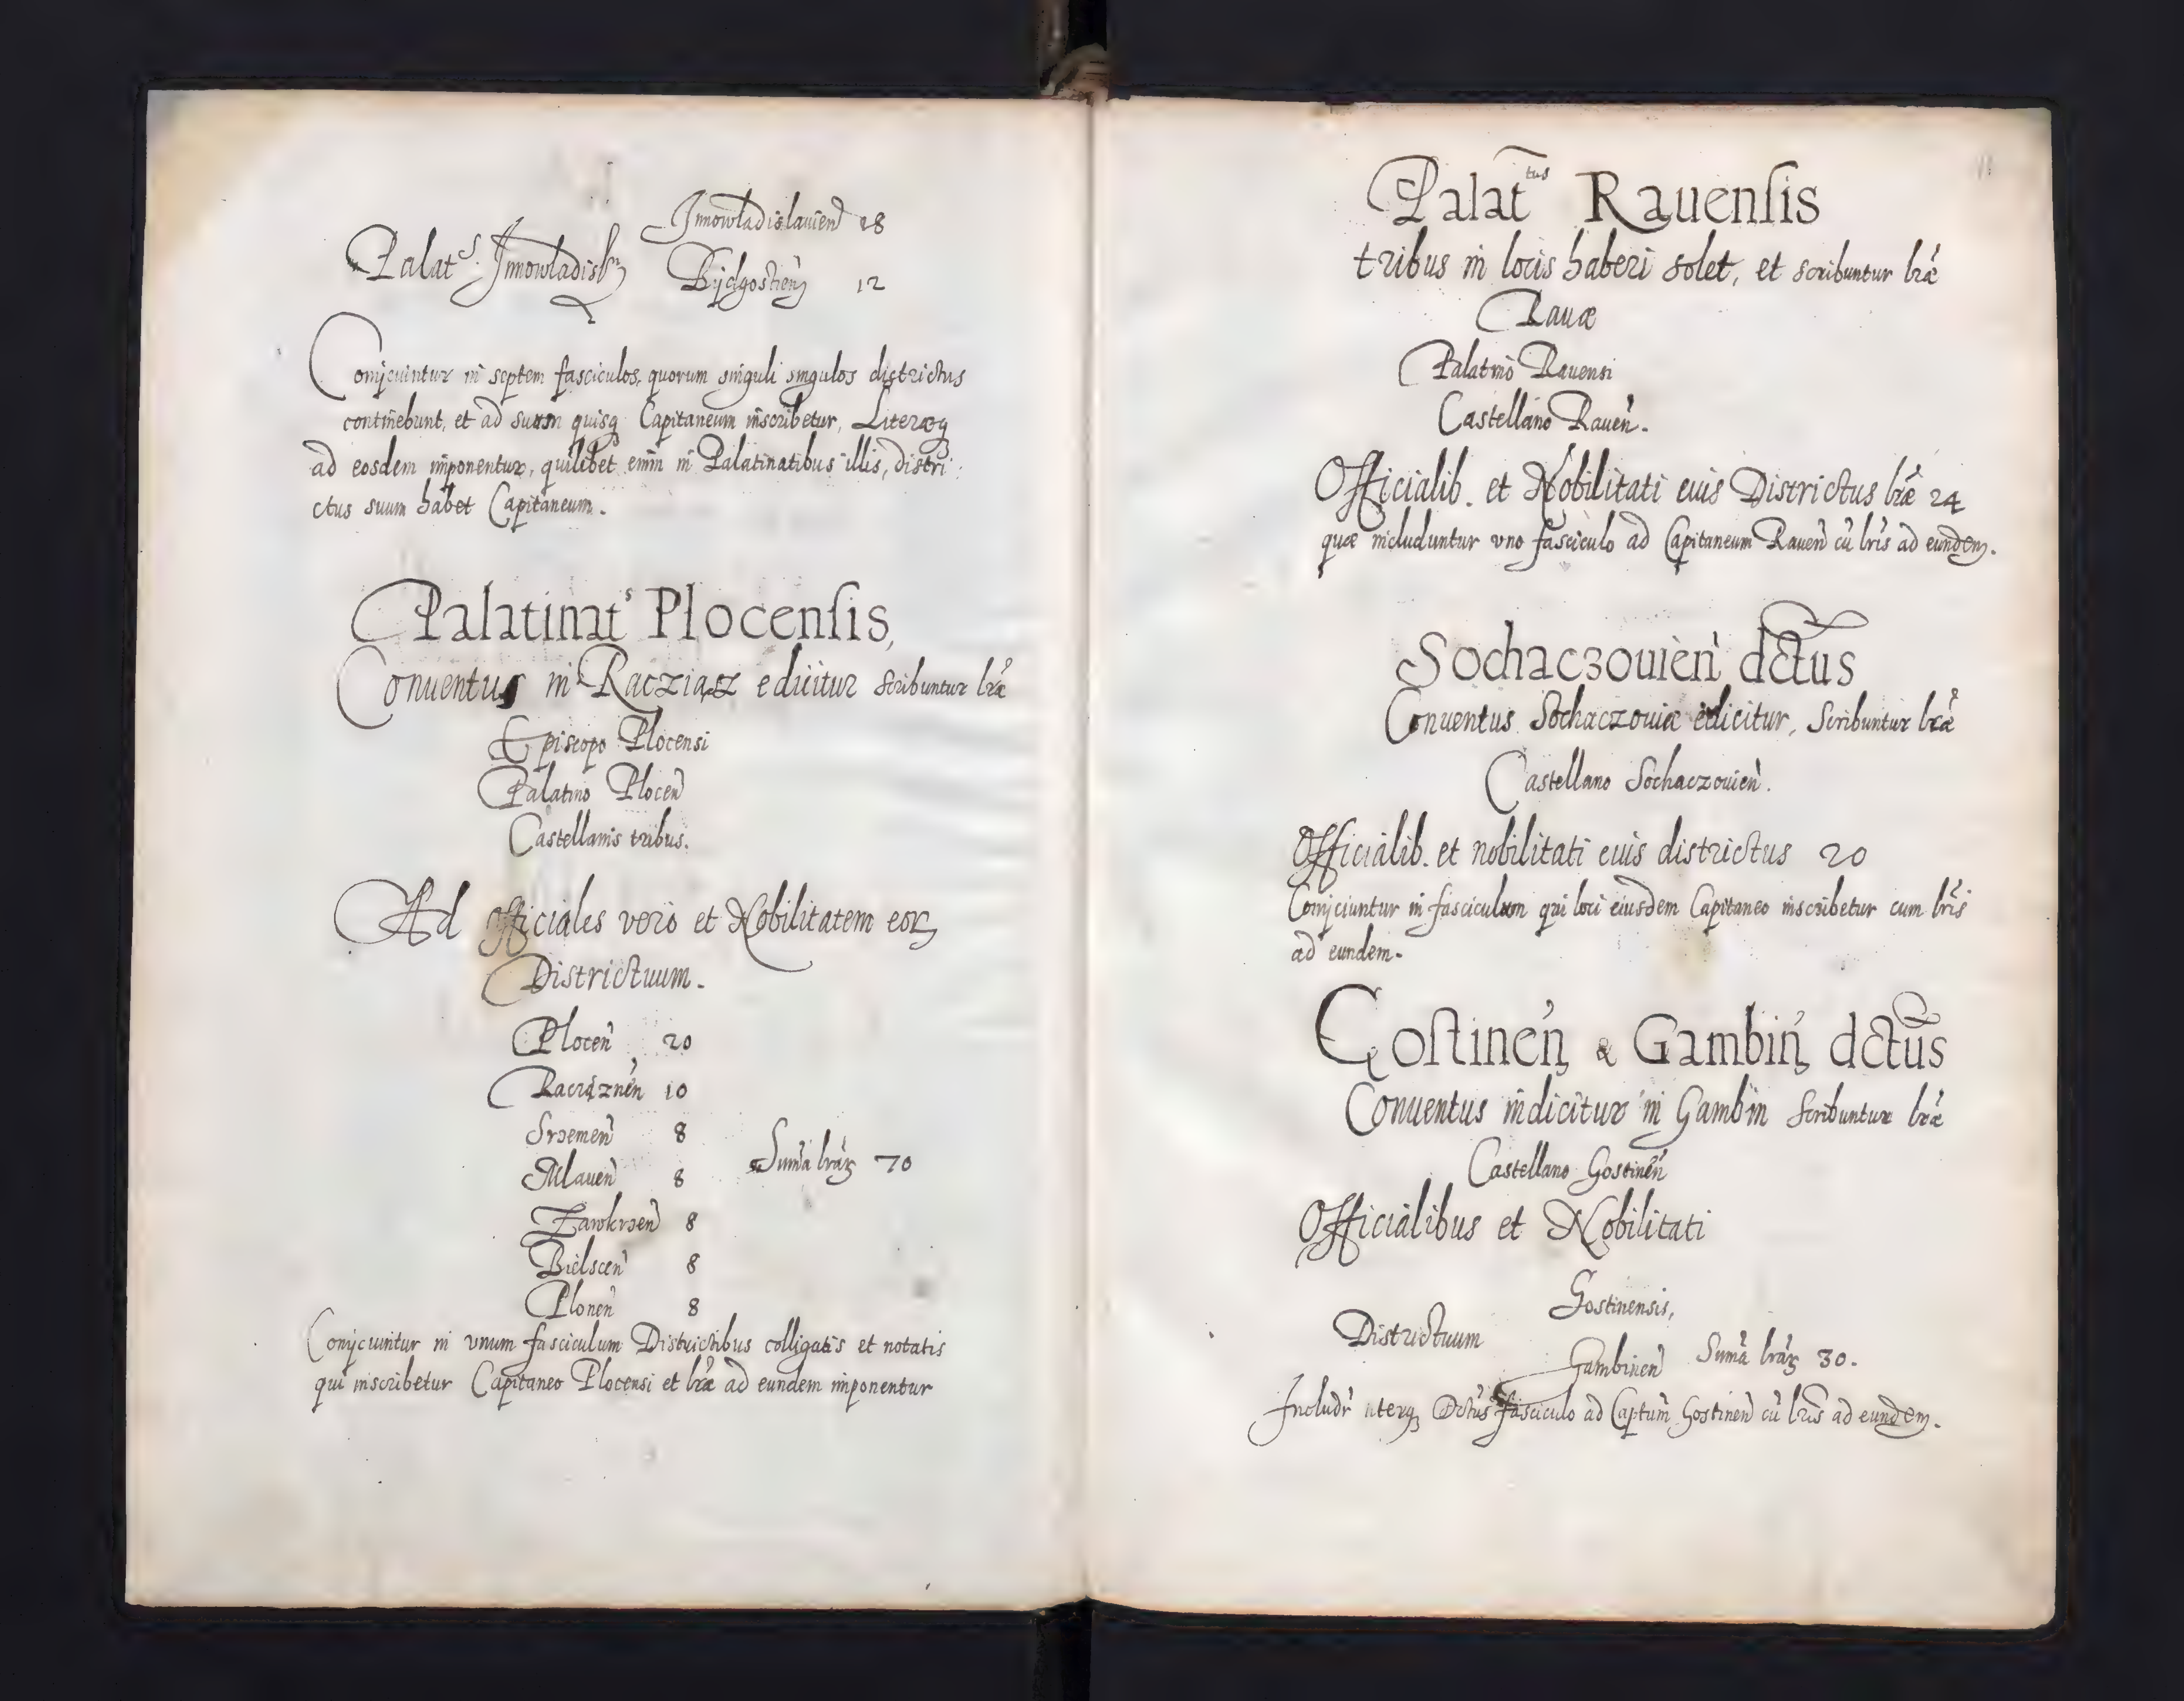 Innowladislauien̄ 28
Palat⁹ Innowladislꝫ
Bijdgostien̄ 12
Conijciuintur in septem fasciculos, quorum singuli singulos districtus
continebunt, et ad suum quisq Capitaneum inscribetur, Literæq
ad eosdem imponentur, quilibet enim in Palatinatibus illis, distri:
ctus suum habet Capitaneum.
Palatinatˢ Plocensis,
Conuentus in Racziasz edicitur scribuntur lr̃æ
Episcopo Plocensi
Palatino Plocen̄
Castellanis tribus.
Ad officiales vero et Nobilitatem eoꝝ
Districtuum.
Plocen̄ 20
Raciąznen̄ 10
Srzemen̄ 8
Mlauen̄ 8
Sum̃a lrãꝝ 70
Zawkrzen̄ 8
Bielscen̄ 8
Plonen̄ 8
Conijciuntur in vnum fasciculum Districtibus colligatis et notatis
qui inscribetur Capitaneo Plocensi et lr̃æ ad eundem imponentur
Palat̃ᵗᵘˢ Rauensis
tribus in locis haberi solet, et scribuntur lr̃æ
Rauæ
Palatino Rauensi
Castellano Rauen̄.
Officialib. et Nobilitati euis Districtus lr̃æ 24
quæ includuntur vno fasciculo ad Capitaneum Rauen̄ cũ lr̃is ad eundem.
Sochaczouien̄ dctus
Conuentus Sochaczouiæ edicitur, Scribuntur lr̃æ
Castellano Sochaczouien̄.
Officialib. et nobilitati euis districtus 20
Conijciuntur in fasciculum qui loci eiusdem Capitaneo inscribetur cum lr̃is
ad eundem.
Gostinen̄ & Gambin̄ dctus
Conuentus indicitur in Gambin Scribuntur lr̃æ
Castellano Gostinen̄
Officialibus et Nobilitati
Gostinensis,
Districtuum
Gambinen̄ Sum̃a lrãꝝ 30.
Includr̃ uterqꝫ Dctus fasciculo ad Capt̃um Gostinen̄ cũ lr̃is ad eundem.